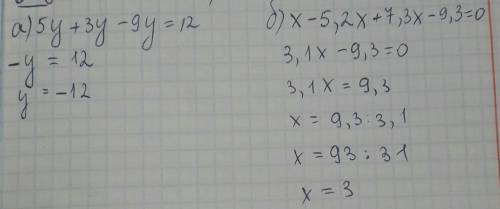 а) 5y + 3y - 9y = 12
-y = 12
y = -12
б) x - 5,2x + 7,3x - 9,3 = 0
3,1x - 9,3 = 0
3,1x = 9,3
x = 9,3 : 3,1
x = 93 : 31
x = 3